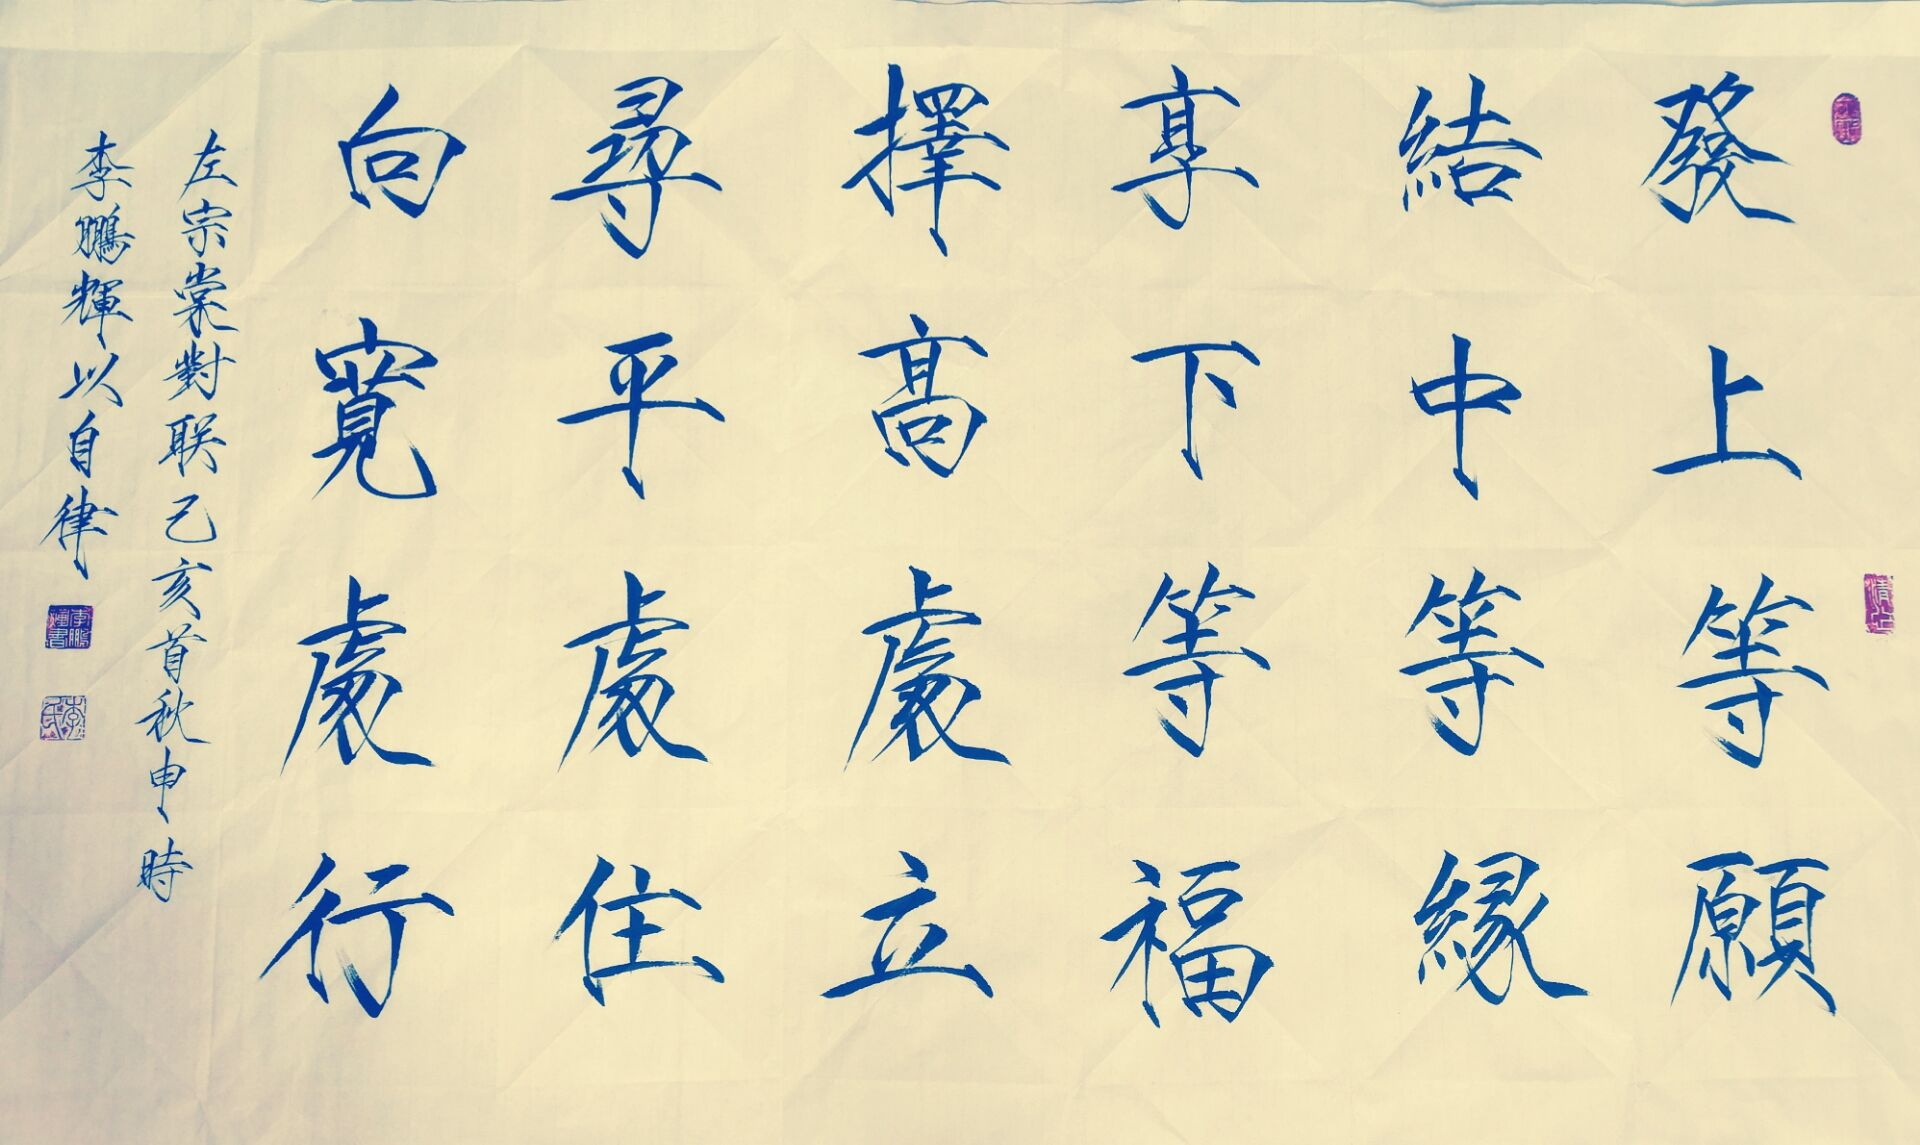 發上等願
結中等緣
享下等福
擇高處立
尋平處住
向寬處行
左宗棠對联己亥首秋申時
李鵬輝以自律
李鵬輝書
李氏